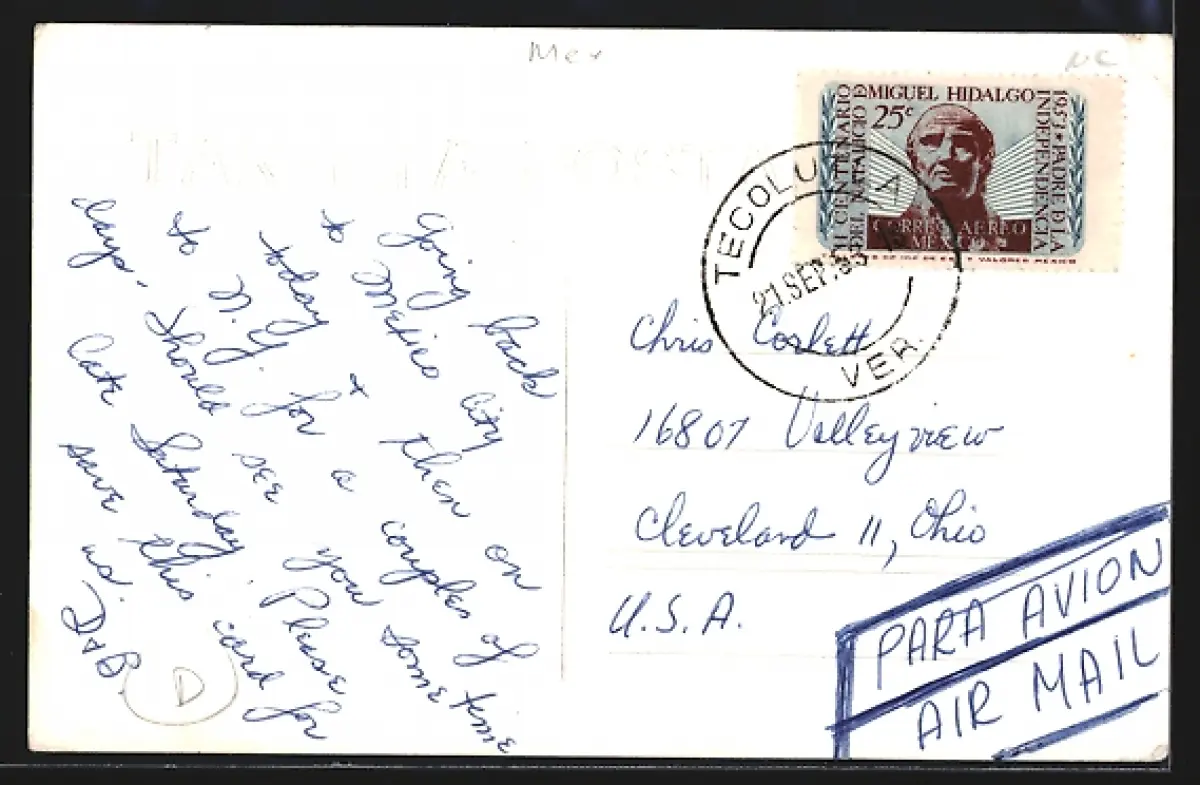 Mex
NC
II CENTENARIO
DEL NATALICIO D
MIGUEL HIDALGO
25c
1953 * PADRE D LA
INDEPENDENCIA
CORREO AEREO
MEXICO
VALORES MEXICO
TECOLUTLA
21.SEP.53
VER.
Going back
to Mexico City
today & then on
to N.Y. for a couples of
days. Should see you sometime
late Saturday. Please
save this card for
us.
D & B.
D
Chris Corlett
16807 Valleyview
Cleveland 11, Ohio
U.S.A.
PARA AVION
AIR MAIL